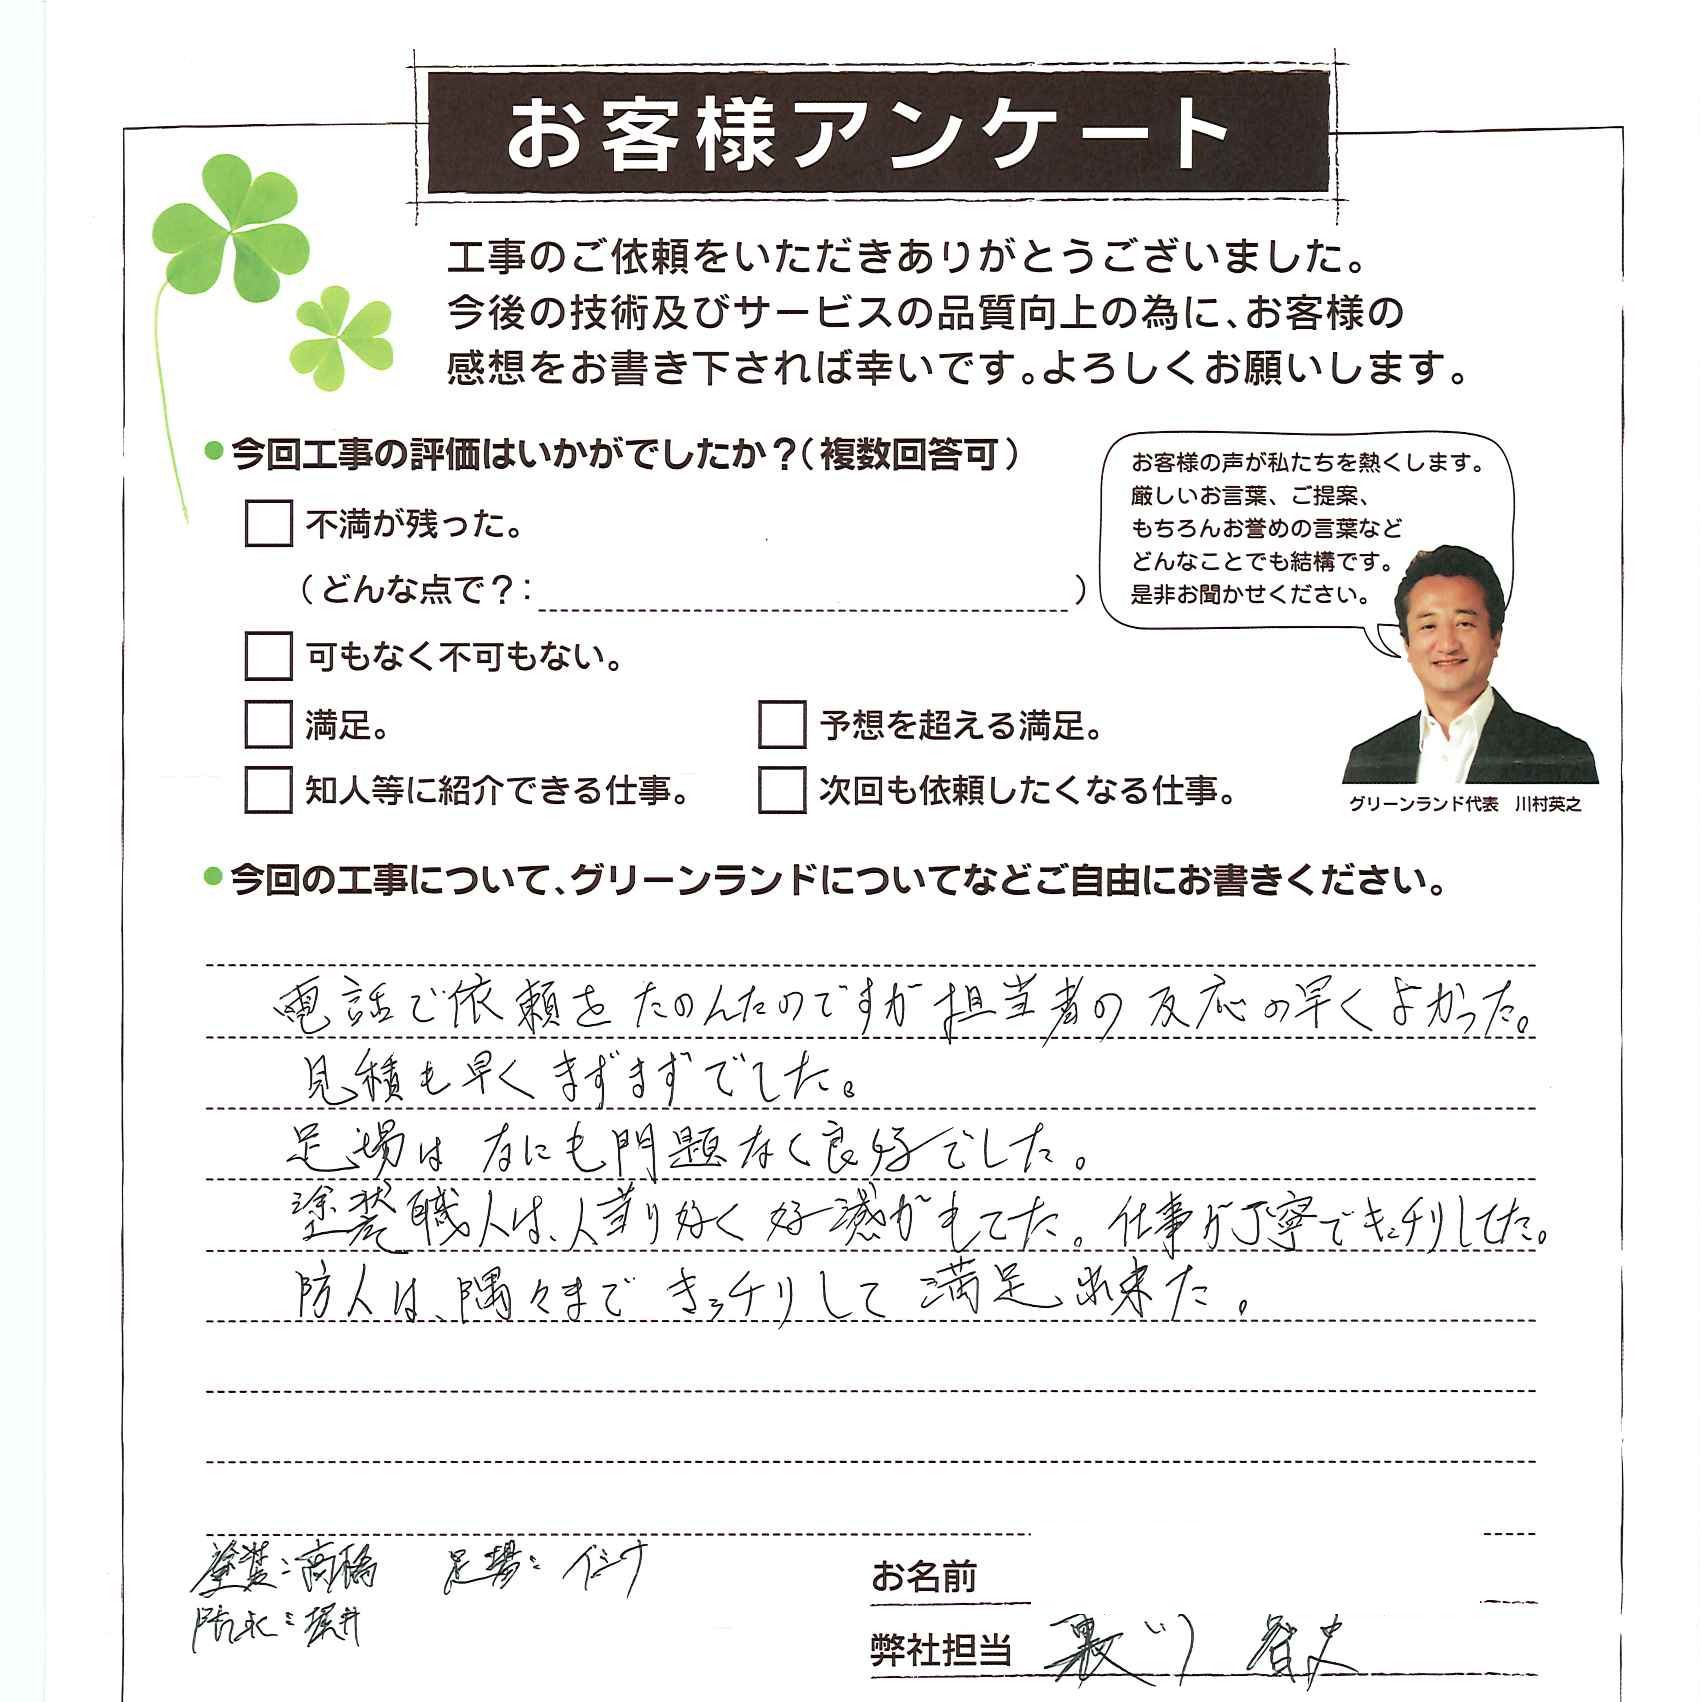 お客様アンケート
工事のご依頼をいただきありがとうございました。
今後の技術及びサービスの品質向上の為に、お客様の
感想をお書き下されば幸いです。よろしくお願いします。
●今回工事の評価はいかがでしたか？（複数回答可）
不満が残った。
（どんな点で？：　）
可もなく不可もない。
満足。
予想を超える満足。
知人等に紹介できる仕事。
次回も依頼したくなる仕事。
お客様の声が私たちを熱くします。
厳しいお言葉、ご提案、
もちろんお誉めの言葉など
どんなことでも結構です。
是非お聞かせください。
グリーンランド代表　川村英之
●今回の工事について、グリーンランドについてなどご自由にお書きください。
電話で依頼をたのんたのですが担当者の反応の早くよかった。
見積も早くまずまずでした。
足場はなにも問題なく良好でした。
塗装職人は、人当り好く好感がもてた。仕事が丁寧でキッチリしてた。
防人は、隅々まできっチリして満足出来た。
塗装：高橋　足場：イシナ
防水：堀井
お名前
弊社担当